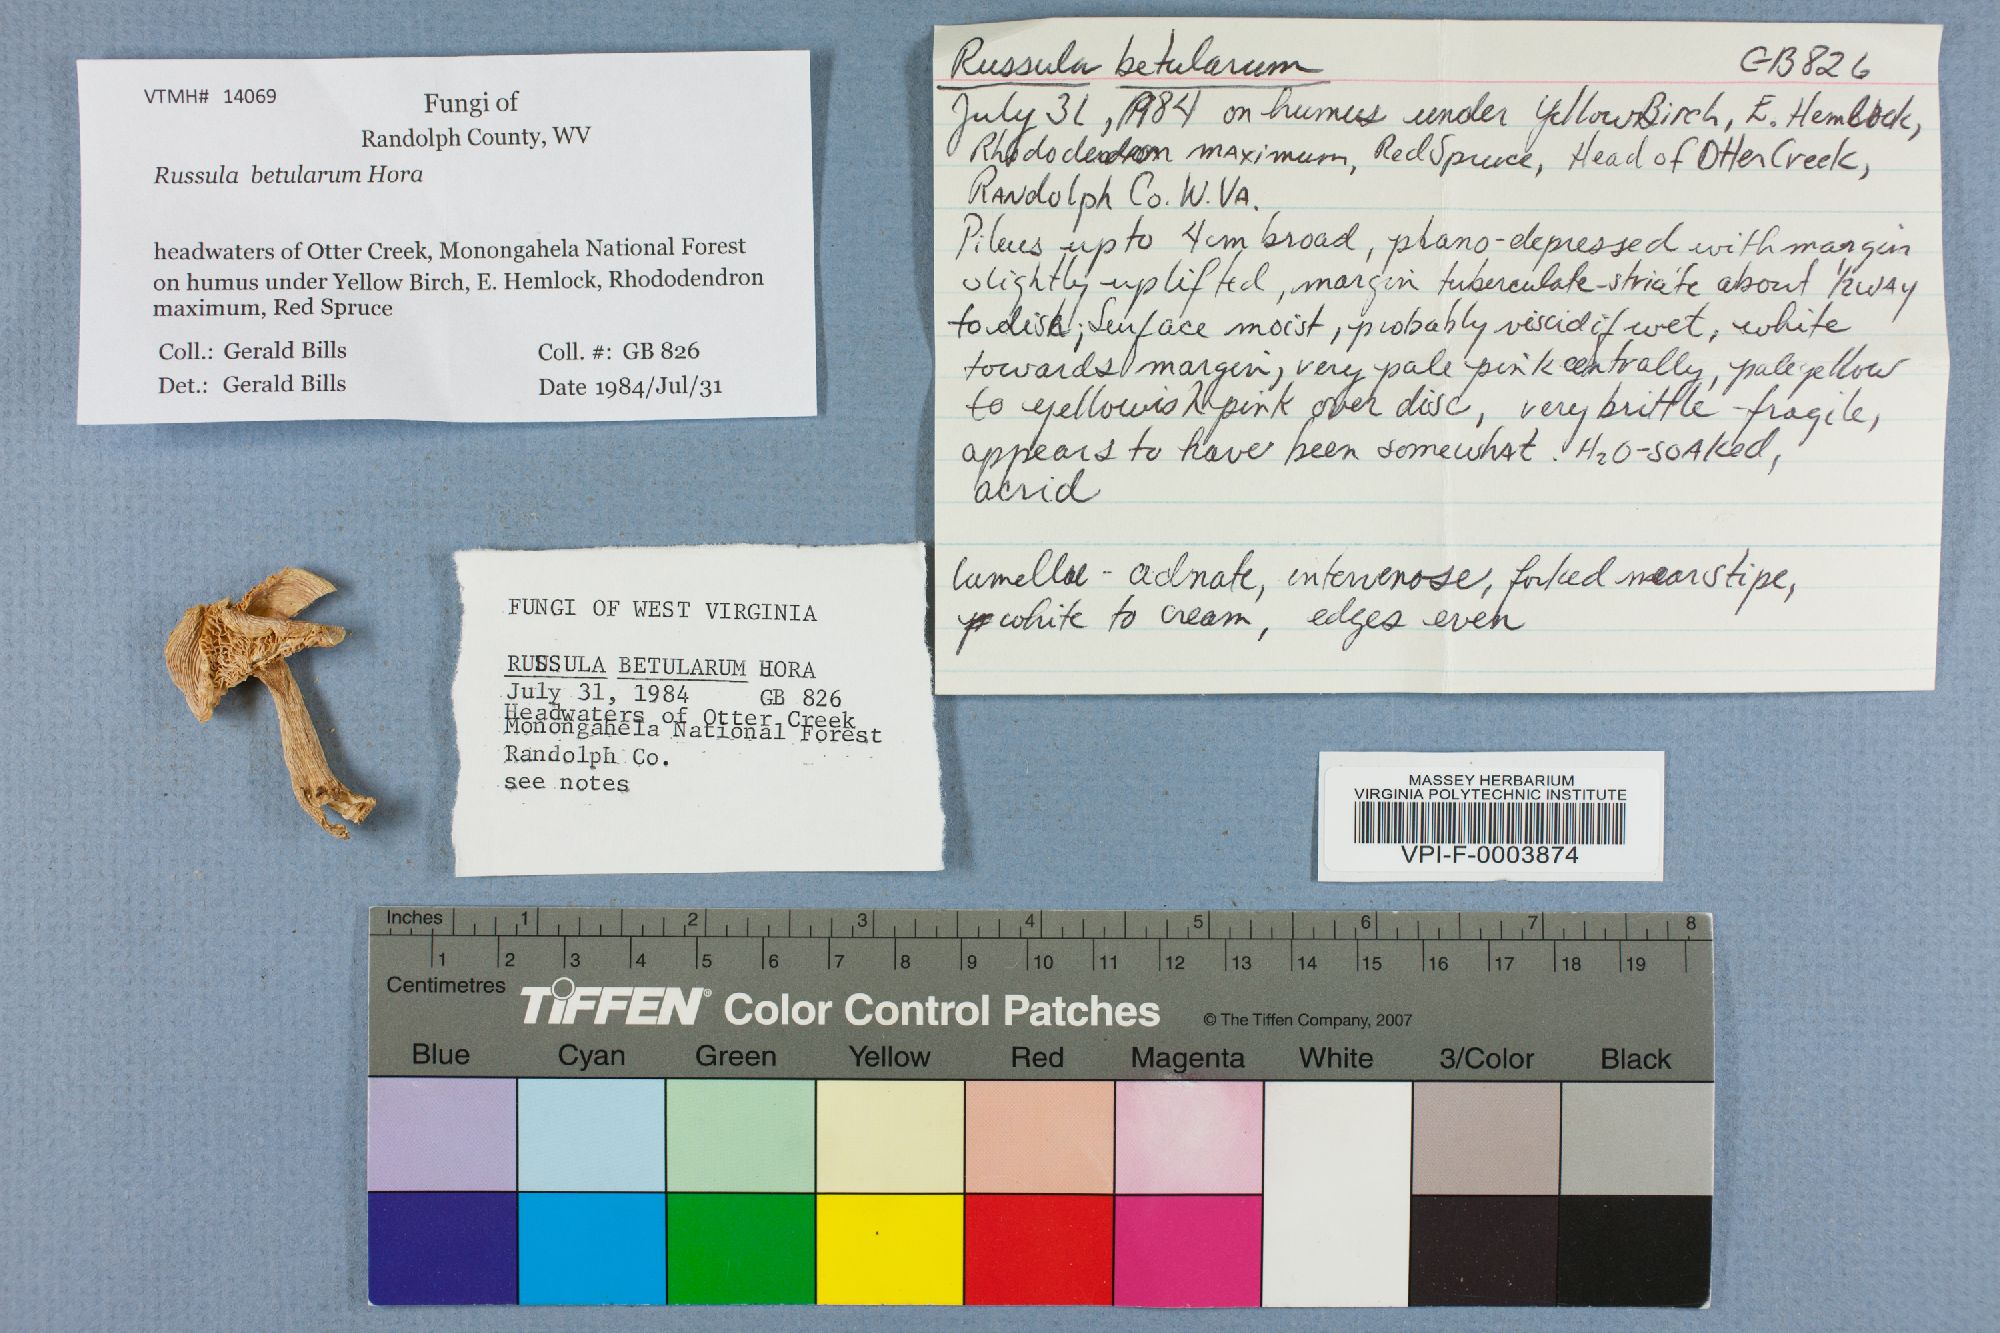 VTMH# 14069
Fungi of
Randolph County, WV
Russula betularum Hora
headwaters of Otter Creek, Monongahela National Forest
on humus under Yellow Birch, E. Hemlock, Rhododendron
maximum, Red Spruce
Coll.: Gerald Bills Coll. #: GB 826
Det.: Gerald Bills Date 1984/Jul/31
Russula betularum GB826
July 31, 1984 on humus under Yellow Birch, E. Hemlock,
Rhododendron maximum, Red Spruce, Head of Otter Creek,
Randolph Co. W. Va.
Pileus up to 4cm broad, plano-depressed with margin
slightly uplifted, margin tuberculate-striate about 1/2 way
to disk; Surface moist, probably viscid if wet, white
towards margin, very pale pink centrally, pale yellow
to yellowish pink over disc, very brittle-fragile,
appears to have been somewhat H2O-soaked,
acrid
lamellae - adnate, intervenose, forked near stipe,
white to cream, edges even
FUNGI OF WEST VIRGINIA
RUSSULA BETULARUM HORA
July 31, 1984 GB 826
Headwaters of Otter Creek
Monongahela National Forest
Randolph Co.
see notes
MASSEY HERBARIUM
VIRGINIA POLYTECHNIC INSTITUTE
VPI-F-0003874
Inches 1 2 3 4 5 6 7 8
1 2 3 4 5 6 7 8 9 10 11 12 13 14 15 16 17 18 19
Centimetres
TIFFEN® Color Control Patches © The Tiffen Company, 2007
Blue Cyan Green Yellow Red Magenta White 3/Color Black